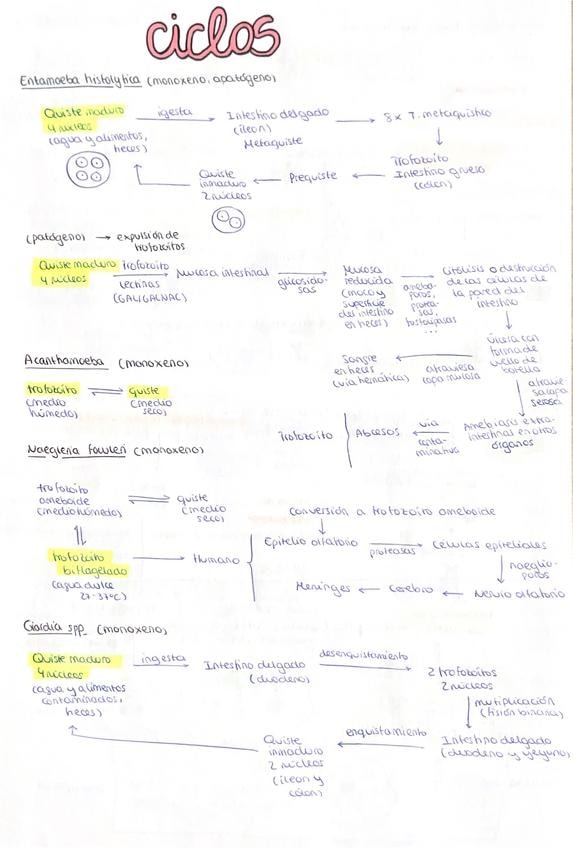 ciclos
Entamoeba histolytica (monoxeno, apatógeno)
Quiste maduro
4 núcleos
(agua y alimentos,
heces)
igesta
Intestino delgado
(íleon)
Metaquiste
8 x T. metaquístico
Trofozoíto
Intestino grueso
(colon)
Prequiste
Quiste
inmaduro
2 núcleos
(patógeno) → expulsión de
trofozoítos
Quiste maduro
4 núcleos
trofozoíto
lectinas
(GAL/GALNAC)
Mucosa intestinal
glicosida-
sas
Mucosa
reducida
(moco y
superficie
del intestino
en heces)
ameba-
poros,
protea-
sas,
fosfolipasas
...
Citólisis o destrucción
de las células de
la pared del
intestino
Úlcera con
forma de
cuello de
botella
atraviesa
capa mucosa
Sangre
en heces
(vía hemática)
atravie-
sa capa
serosa
Amebiasis extra-
intestinal en otros
órganos
vía
conta-
minativa
Abcesos
Trofozoíto
Acanthamoeba (monoxeno)
trofozoíto
(medio
húmedo)
quiste
(medio
seco)
Naegleria fowleri (monoxeno)
trofozoíto
ameboide
(medio húmedo)
quiste
(medio
seco)
trofozoíto
biflagelado
(agua dulce
27-37ºC)
Humano
Conversión a trofozoíto ameboide
Epitelio olfatorio
proteasas
Células epiteliales
naeglio-
poros
Nervio olfatorio
Cerebro
Meninges
Giardia spp. (monoxeno)
Quiste maduro
4 núcleos
(agua y alimentos
contaminados,
heces)
ingesta
Intestino delgado
(duodeno)
desenquistamiento
2 trofozoítos
2 núcleos
multiplicación
(fisión binaria)
Intestino delgado
(duodeno y yeyuno)
enquistamiento
Quiste
inmaduro
2 núcleos
(íleon y
colon)